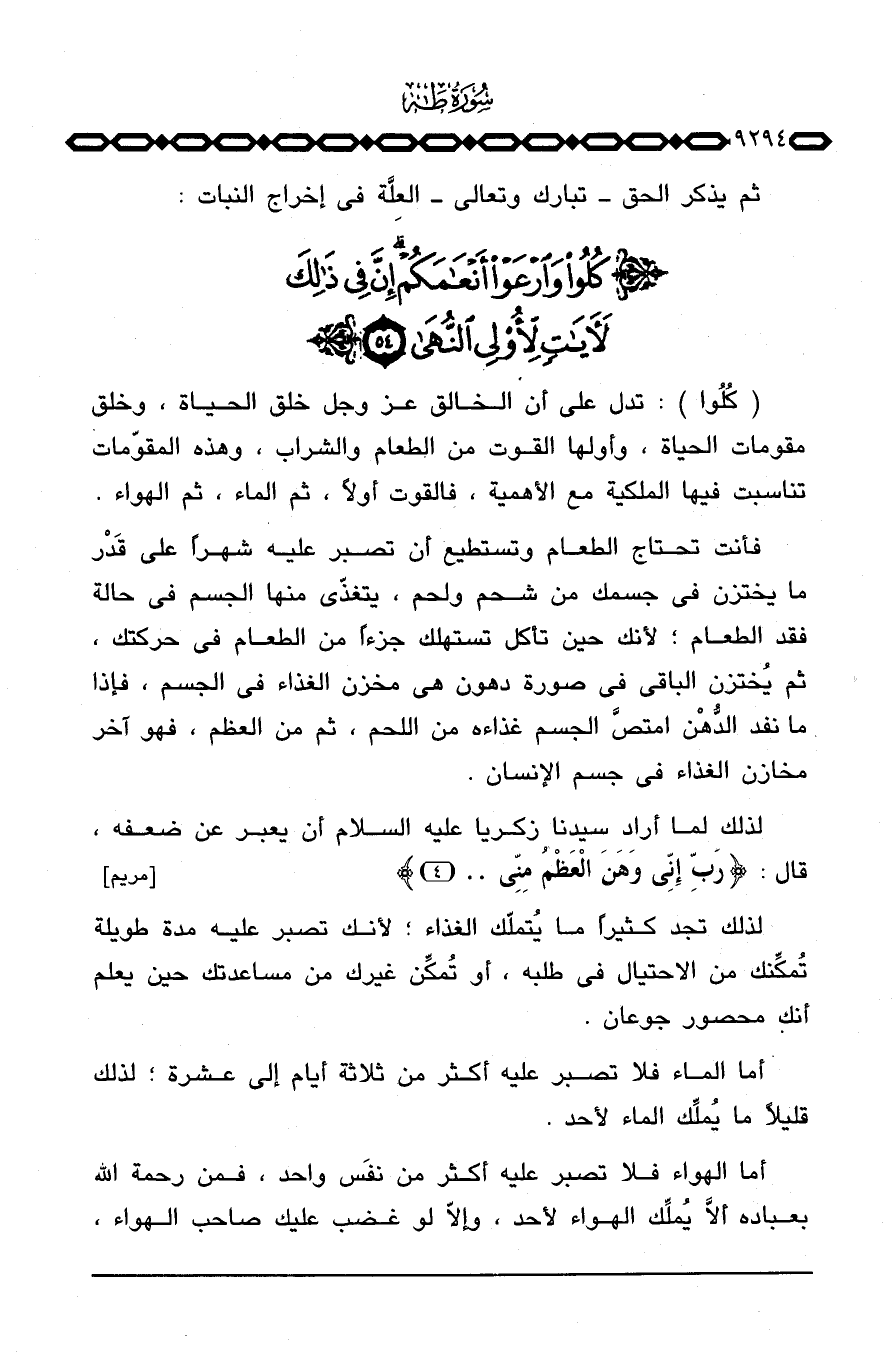 سُورَةُ طٰهٰ
٩٢٩٤
ثم يذكر الحق - تبارك وتعالى - العلَّة فى إخراج النبات :
كُلُوا۟ وَٱرْعَوْا۟ أَنْعَٰمَكُمْ ۗ إِنَّ فِى ذَٰلِكَ
لَءَايَٰتٍ لِّأُو۟لِى ٱلنُّهَىٰ ٥٤
( كُلُوا ) : تدل على أن الخالق عز وجل خلق الحياة ، وخلق
مقومات الحياة ، وأولها القوت من الطعام والشراب ، وهذه المقوّمات
تناسبت فيها الملكية مع الأهمية ، فالقوت أولاً ، ثم الماء ، ثم الهواء .
فأنت تحتاج الطعام وتستطيع أن تصبر عليه شهراً على قَدْر
ما يختزن فى جسمك من شحم ولحم ، يتغذّى منها الجسم فى حالة
فقد الطعام ؛ لأنك حين تأكل تستهلك جزءاً من الطعام فى حركتك ،
ثم يُختزن الباقى فى صورة دهون هى مخزن الغذاء فى الجسم ، فإذا
ما نفد الدُّهْن امتصَّ الجسم غذاءه من اللحم ، ثم من العظم ، فهو آخر
مخازن الغذاء فى جسم الإنسان .
لذلك لما أراد سيدنا زكريا عليه السلام أن يعبر عن ضعفه ،
قال : ﴿ رَبِّ إِنِّى وَهَنَ الْعَظْمُ مِنِّى .. (٤) ﴾ [مريم]
لذلك تجد كثيراً ما يُتملّك الغذاء ؛ لأنك تصبر عليه مدة طويلة
تُمكِّنك من الاحتيال فى طلبه ، أو تُمكِّن غيرك من مساعدتك حين يعلم
أنك محصور جوعان .
أما الماء فلا تصبر عليه أكثر من ثلاثة أيام إلى عشرة ؛ لذلك
قليلاً ما يُملِّك الماء لأحد .
أما الهواء فلا تصبر عليه أكثر من نفَس واحد ، فمن رحمة الله
بعباده ألاَّ يُملِّك الهواء لأحد ، وإلاّ لو غضب عليك صاحب الهواء ،